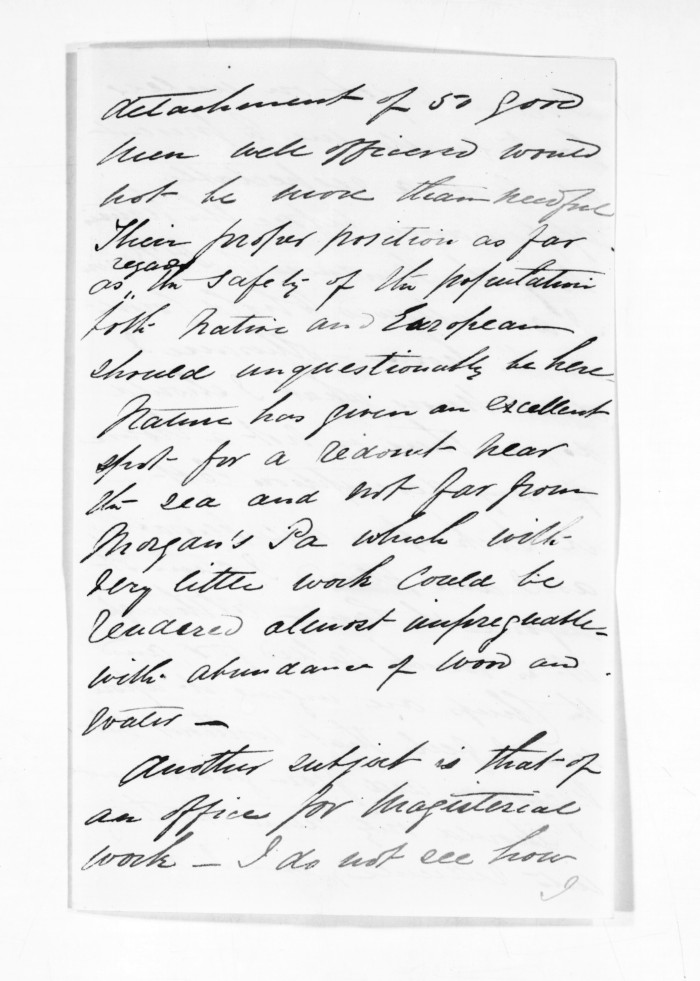 detachment of 50 good
men well officered would
not be more than needful
Their proper position as far
regards
as the safety of the population
both Native and European
should unquestionably be here
Nature has given an excellent
spot for a redoubt near
the sea and not far from
Morgan's Pa which with
very little work could be
rendered almost impregnable -
with abundance of wood and
water —
Another subject is that of
an office for Magisterial
work — I do not see how
I